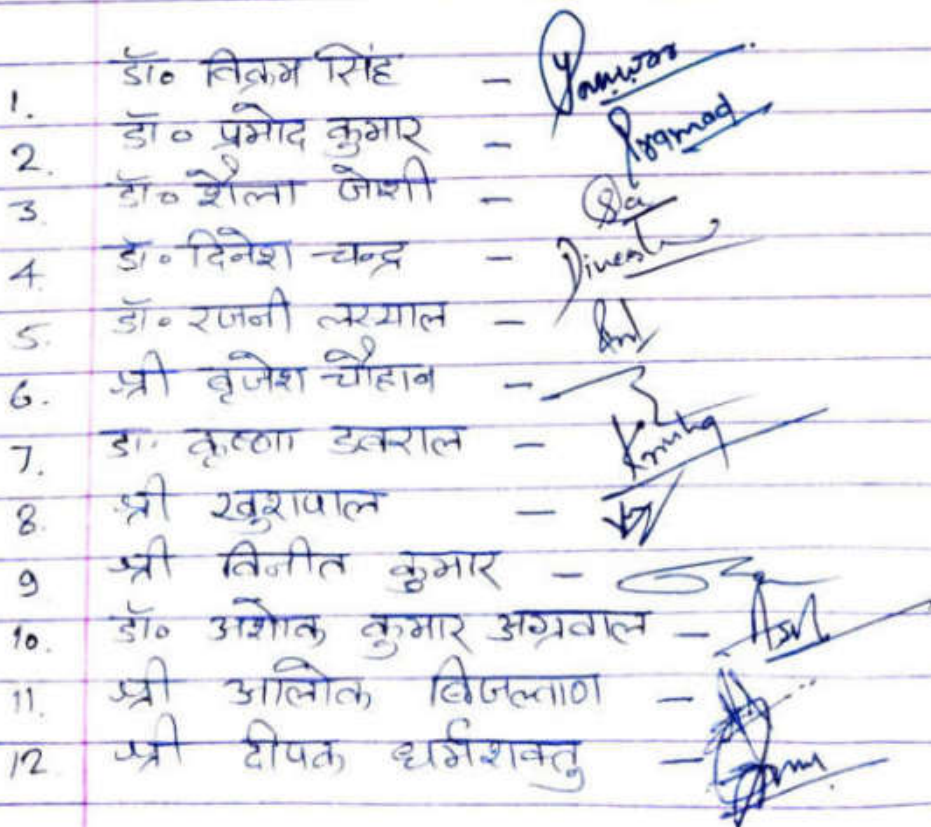 1. डॉ० विक्रम सिंह - Panwar
2. डॉ० प्रमोद कुमार - Pramod
3. डॉ० शैला जोशी -
4. डॉ. दिनेश चन्द्र - Dinesh
5. डॉ. रजनी लस्याल -
6. श्री बृजेश चौहान -
7. डा. कृष्णा डबराल - Krishna
8. श्री खुशपाल -
9 श्री विनीत कुमार -
10. डॉ० अशोक कुमार अग्रवाल -
11. श्री आलोक बिजल्वाण -
12. श्री दीपक धर्मशक्तु -